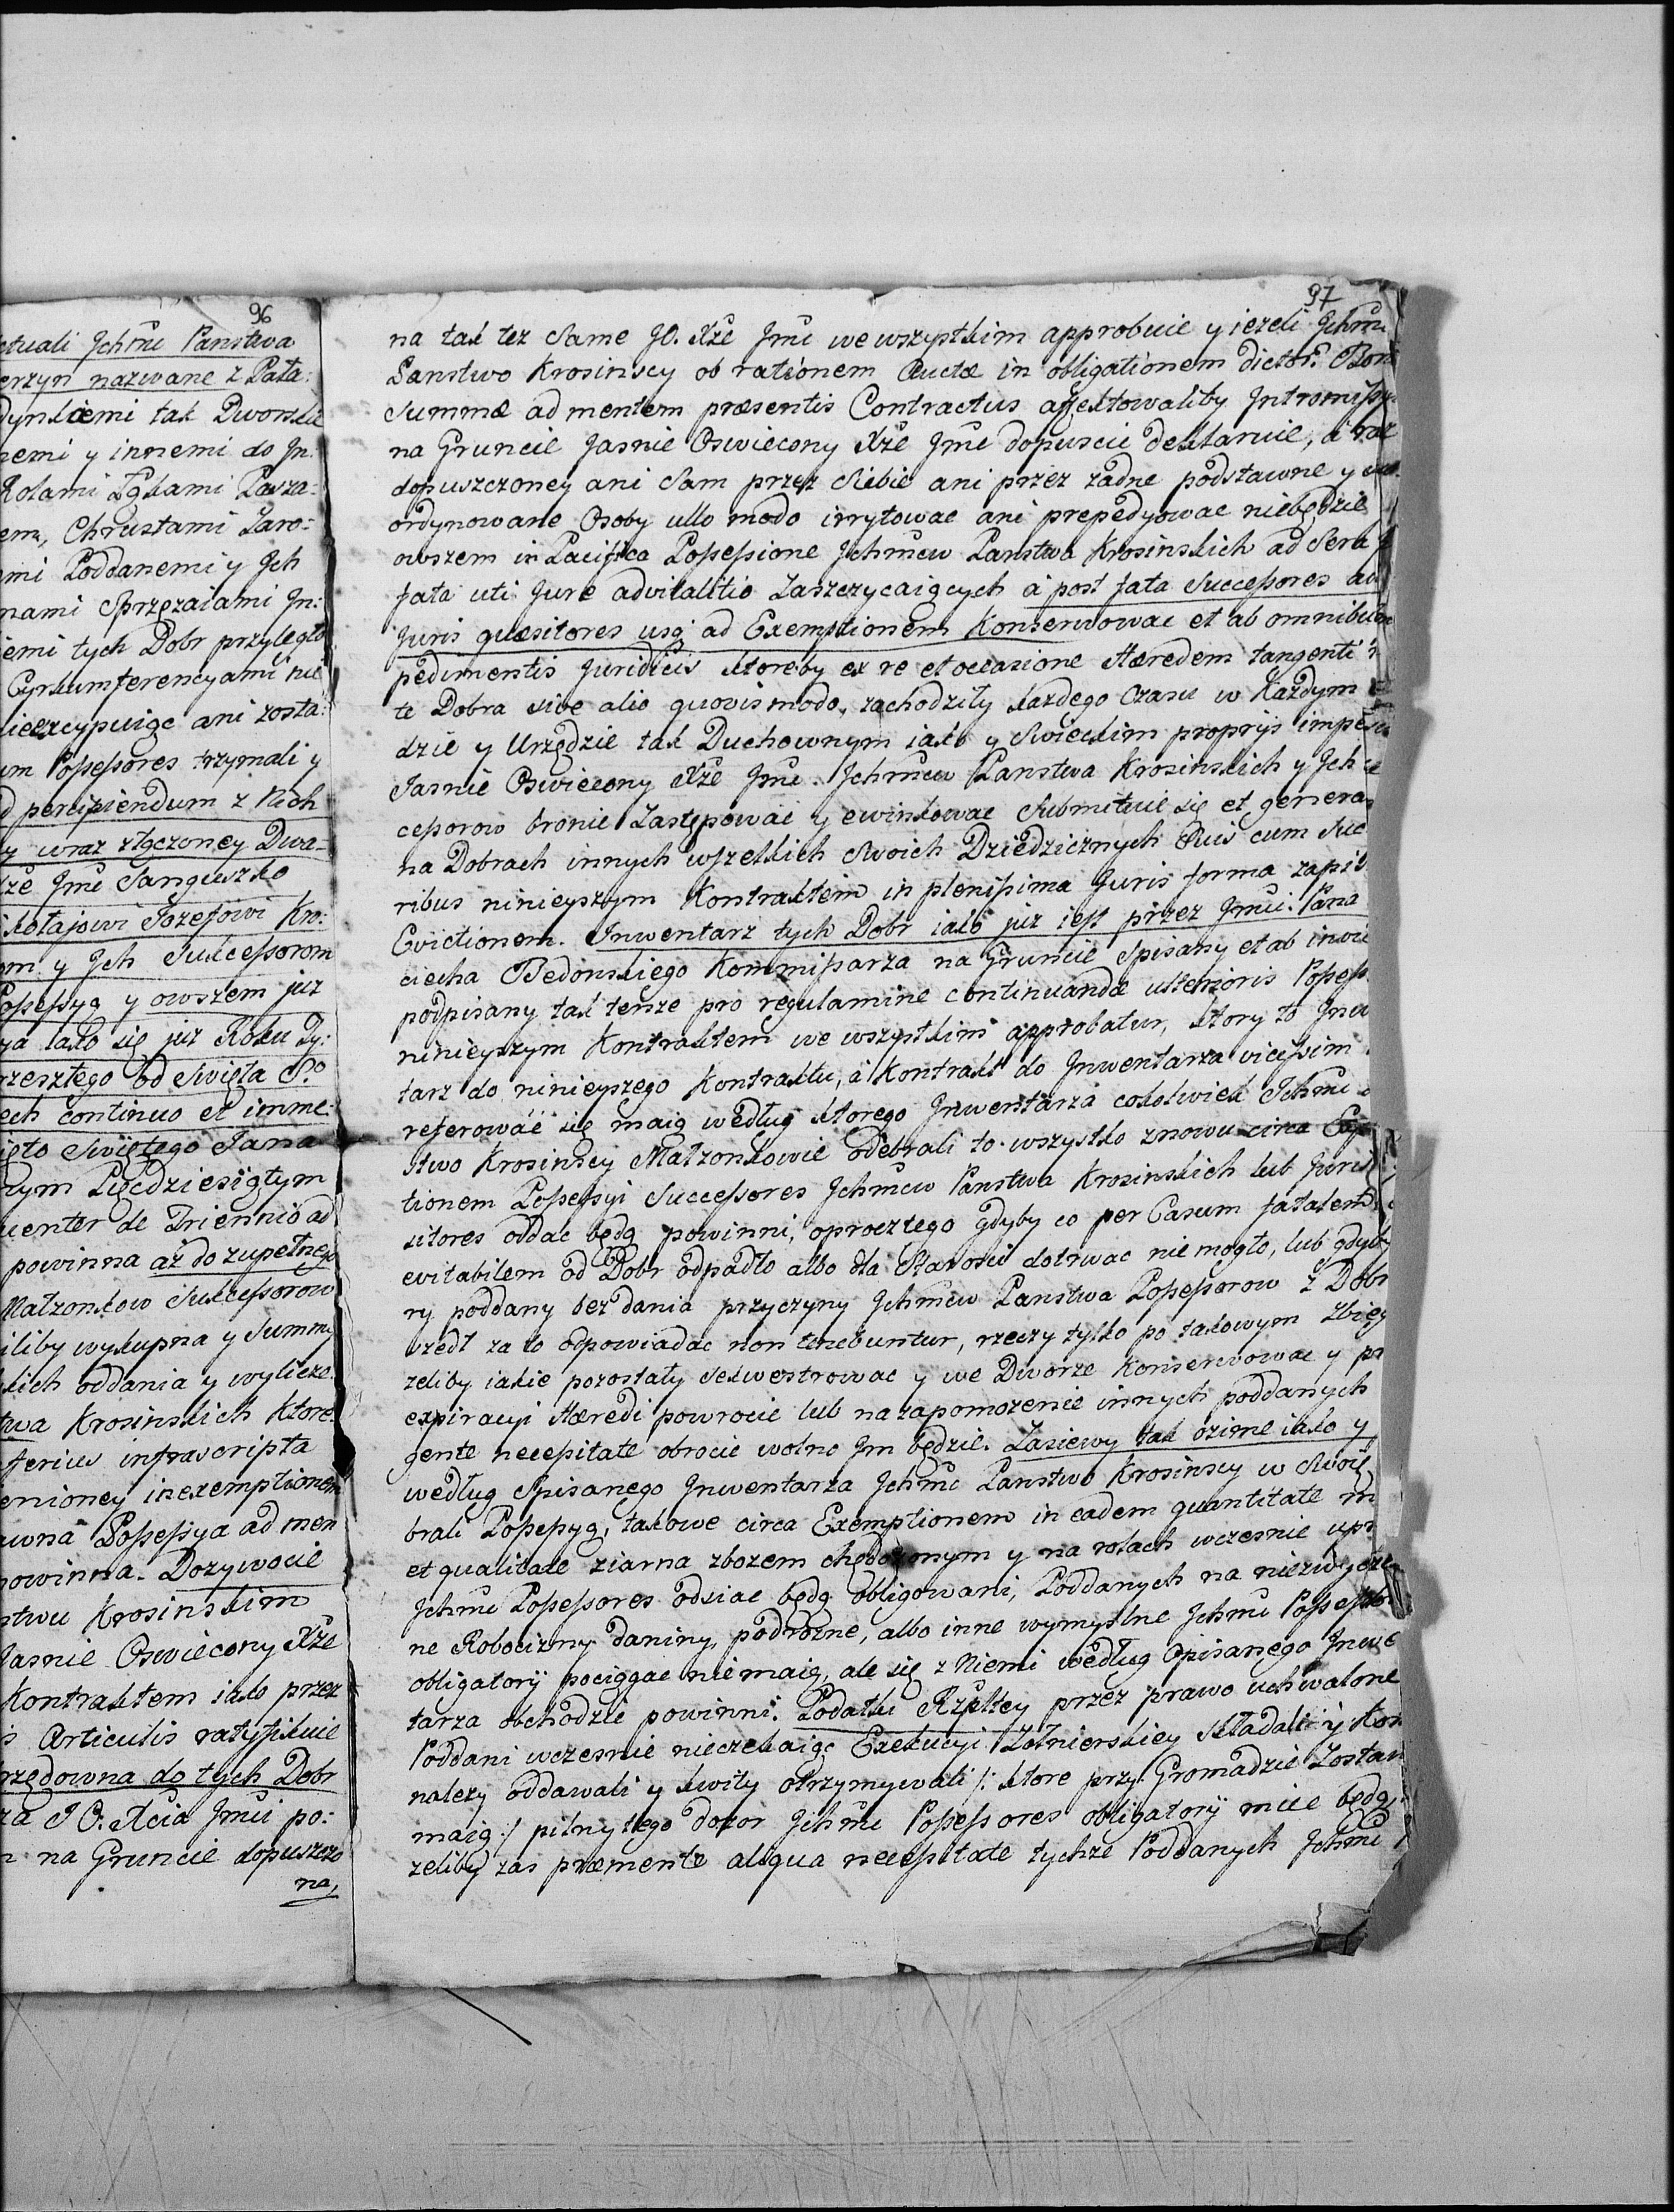 96
ctuali Jchmć Panstwa
erzyn nazwane z Pała:
dynkiemi tak Dworski
nemi y innemi do Jn:
Rolami Łąkami Pasza:
em, Chrustami Zaro:
mi Poddanemi y Jch
nami Sprzęzaiami Jn:
iemi tych Dobr przyległo
Cyrkumferencyami nic
nieexcypuiąc ani zosta:
um Possessores trzymali y
d percipiendum z Nich
y wraz złączoney Dwa=
Xże Jmć Sanguszko
ikołajowi Jozefowi Kro:
om y Jch Sukcessorom
Possessyą y owszem już
ya iako się już Roku Ty:
rzeszłego od Swięta S.º
ech continuo et imme:
ięto Swiętego Jana
nym Pięcdziesiątym
uenter de Triennio ad
powinna aż do zupełnego
Małzonkow Sukcessorow
iliby wykupna y Summy
skich oddania y wylicze:
twa Krosinskich Ktore
ferius infrascripta
enioney in exemptionem
awna Possessya ad men
powinna. Dozywocie
stwu Krosinskim
Jasnie Oswiecony Xże
Kontraktem iako przez
s Articulis ratyfikuie
rzędowna do tych Dobr
za J O. Xcia Jmci po:
n na Gruncie dopuszczo
na,
97
na tak tez Same JO. Xże Jmć we wszystkim approbuie y iezeli Jchmć
Panstwo Krosinscy ob rationem Auctæ in obligationem dictor. Bon
Summæ ad mentem præsentis Contractus affektowaliby Intromissyi
na Gruncie Jasnie Oswiecony Xże Jmć dopuscic deklaruie, á raz
dopuszczoney ani Sam przez Siebie ani przez zadne podstawne y
ordynowane Osoby ullo modo irrytowac ani prepedyowac niebędzie
owszem in Pacifica Possessione Jchmćw Panstwa Krosinskich ad Sera
fata uti Jure advitalitio Zaszczycaiących á post fata Successores au
Juris quæsitores usq; ad Exemptionem Konserwowac et ab omnibus
pedimentis Juridicis ktoreby ex re et occasione Hæredem tangenti
te Dobra sive alio quovis modo, zachodziły kazdego Czasu w Kazdym
dzie y Urzędzie tak Duchownym iako y Swieckim propriis impe
Jasnie Oswiecony Xże Jmć. Jchmćw Panstwa Krosinskich y Jch
cessorow bronic Zastępowac y ewinkowac Submituie się et genera
na Dobrach innych wszelkich Swoich Dziedzicznych Suis cum Suc
ribus ninieyszym Kontraktem in plenissima Juris forma zapis
Evictionem. Inwentarz tych Dobr iako już iest przez Jmci. Pana
ciecha Bedonskiego Kommissarza na Gruncie Spisany et ab invi
podpisany tak tenze pro regulamine continuandæ ulterioris Possess
ninieyszym Kontraktem we wszystkim approbatur, ktory to Inw
tarz do ninieyszego Kontraktu, á Kontrakt do Inwentarza vicissim
referowac się maią według ktorego Inwentarza cokolwiek Jchmć
stwo Krosinscy Małzonkowie odebrali to wszystko znowu circa Exp
tionem Possessyi Successores Jchmćw Panstwa Krosinskich lub Juris
sitores oddac będą powinni, oprocz tego gdyby co per Casum fatalem
evitabilem od Dobr odpadło albo dla Starosci dotrwac nie mogło, lub gdyby
ry poddany bez dania przyczyny Jchmćw Panstwa Possessorow z Dobr
szedł za to odpowiadac non tenebuntur, rzeczy tylko po takowym Zbieg
zeliby iakie pozostały sekwestrowac y we Dworze Konserwowac y pr
expiracyi Hæredi powrocic lub na zapomozenie innych poddanych
gente necessitate obrocic wolno Jm będzie. Zasiewy tak ozime iako y
według Spisanego Inwentarza Jchmć Panstwo Krosinscy w Swoię
brali Possessyą, takowe circa Exemptionem in eadem quantitate
et qualitate ziarna zbozem chędozonym y na rolach wczesnie upr
Jchmć Possessores odsiac będą obligowani, Poddanych na niezwycze
ne Robocizny daniny, podrozne, albo inne wymyslne Jchmć Possesso
obligatorÿ pociągac niemaią, ale się z Niemi według Opisanego Inwe
tarza obchodzic powinni. Podatki Rzpltey przez prawo uchwalone
Poddani wczesnie nieczekaiąc Exekucyi Zołnierskiey składali y
nalezy oddawali y kwity otrzymywali /: ktore przy Gromadzie Zostaw
maią :/ pilny tego dozor Jchmć Possessores obligatorÿ miec będą,
zeliby zas præmente aliqua necessitate tychze Poddanych Jchmć